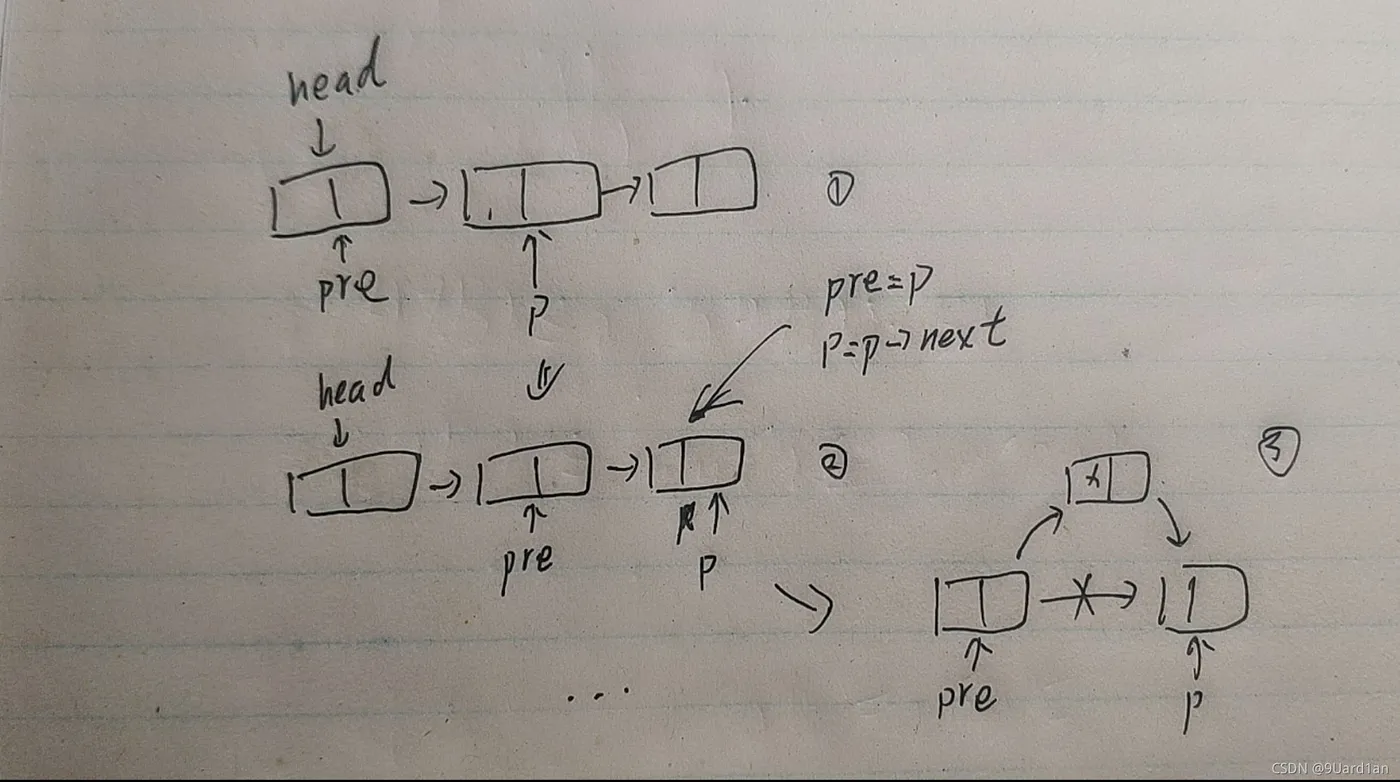 head
①
pre
p
pre=p
p=p→next
head
②
pre
p
③
x
pre
p
...
CSDN @9Uard1an